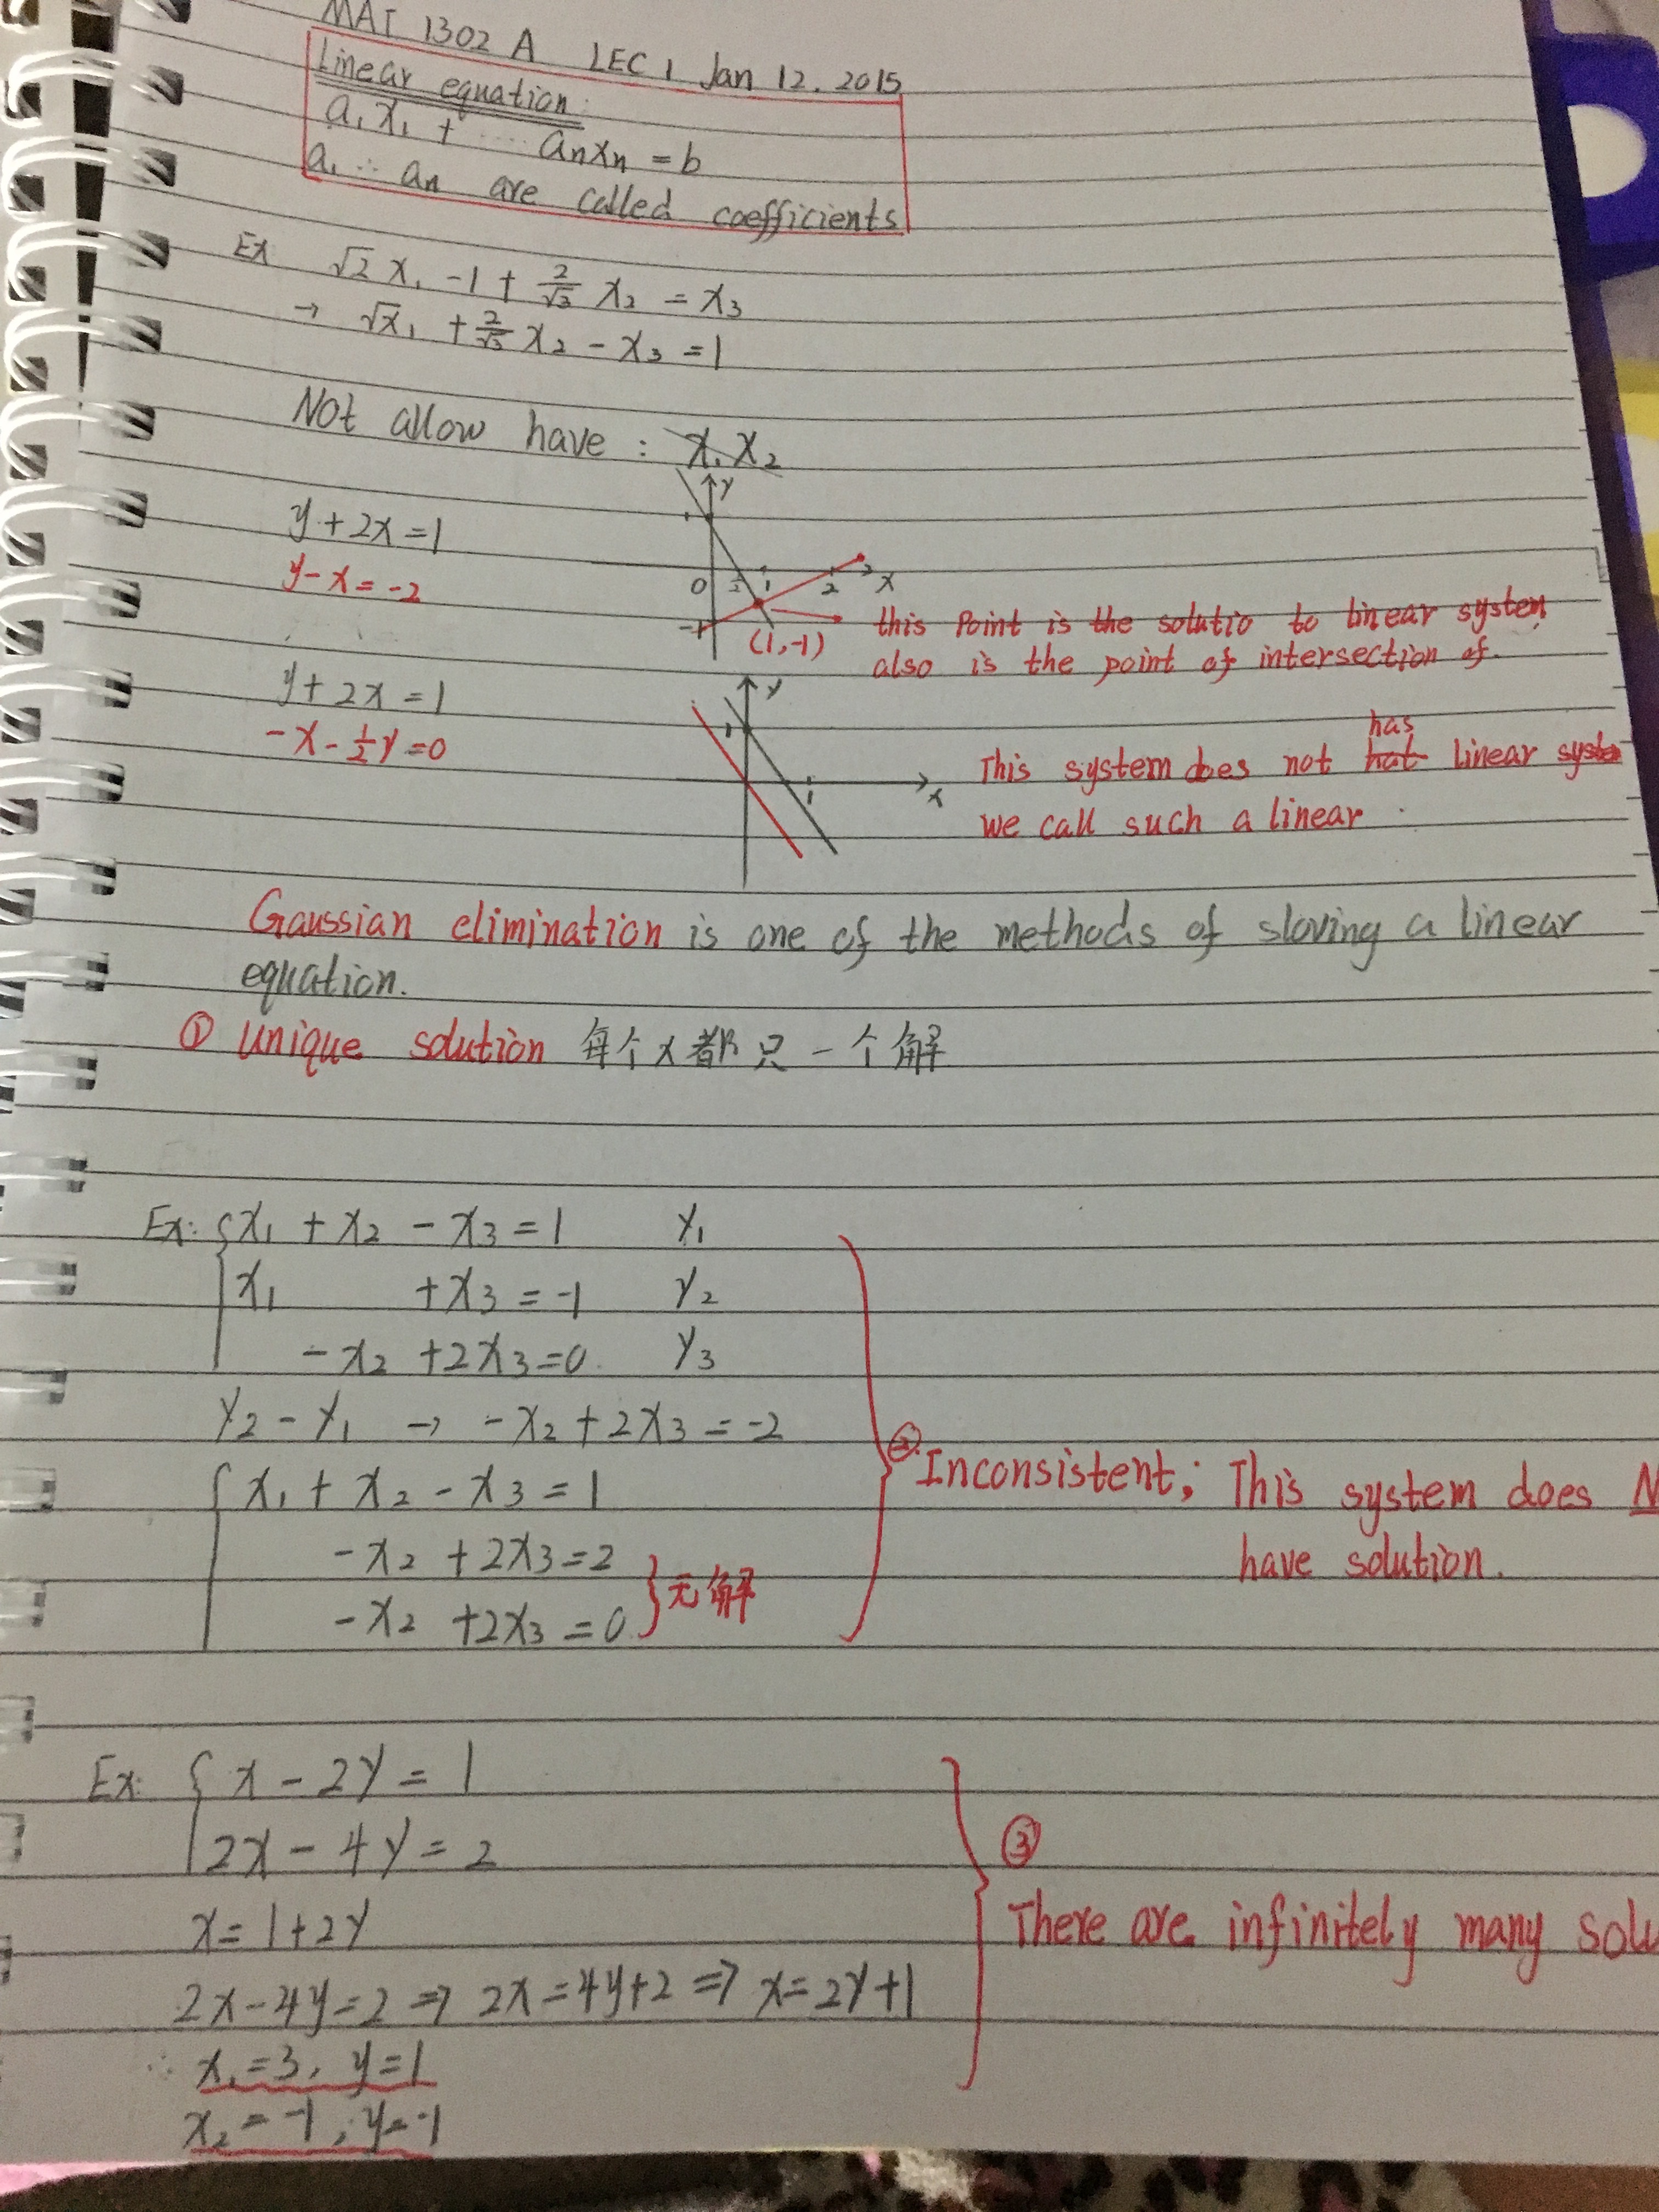 MAT 1302 A LEC 1 Jan 12. 2015
Linear equation:
a₁x₁ + ... aₙxₙ = b
a₁ ... aₙ are called coefficients
Ex √2 x₁ -1 + 2/√3 x₂ = x₃
→ √x₁ + 2/√3 x₂ - x₃ = 1
Not allow have : x₁x₂
y + 2x = 1
y - x = -2
y
1
0 1/2 1 2 x
-1
(1,-1)
this Point is the solutio to linear system
also is the point of intersection of.
y + 2x = 1
-x - 1/2 y = 0
y
1
1 x
has
This system does not hat linear system
we call such a linear
Gaussian elimination is one of the methods of sloving a linear
equation.
① unique solution 每个x都只一个解
Ex: { x₁ + x₂ - x₃ = 1 Y₁
x₁ + x₃ = -1 Y₂
- x₂ + 2x₃ = 0. Y₃
Y₂ - Y₁ → -x₂ + 2x₃ = -2
{ x₁ + x₂ - x₃ = 1
-x₂ + 2x₃ = 2
-x₂ + 2x₃ = 0 } 无解
② Inconsistent; This system does N
have solution.
Ex: { x - 2y = 1
2x - 4y = 2
x = 1 + 2y
2x - 4y = 2 ⇒ 2x = 4y + 2 ⇒ x = 2y + 1
∴ x₁ = 3, y = 1
x₂ = -1, y = -1
③
There are infinitely many solu